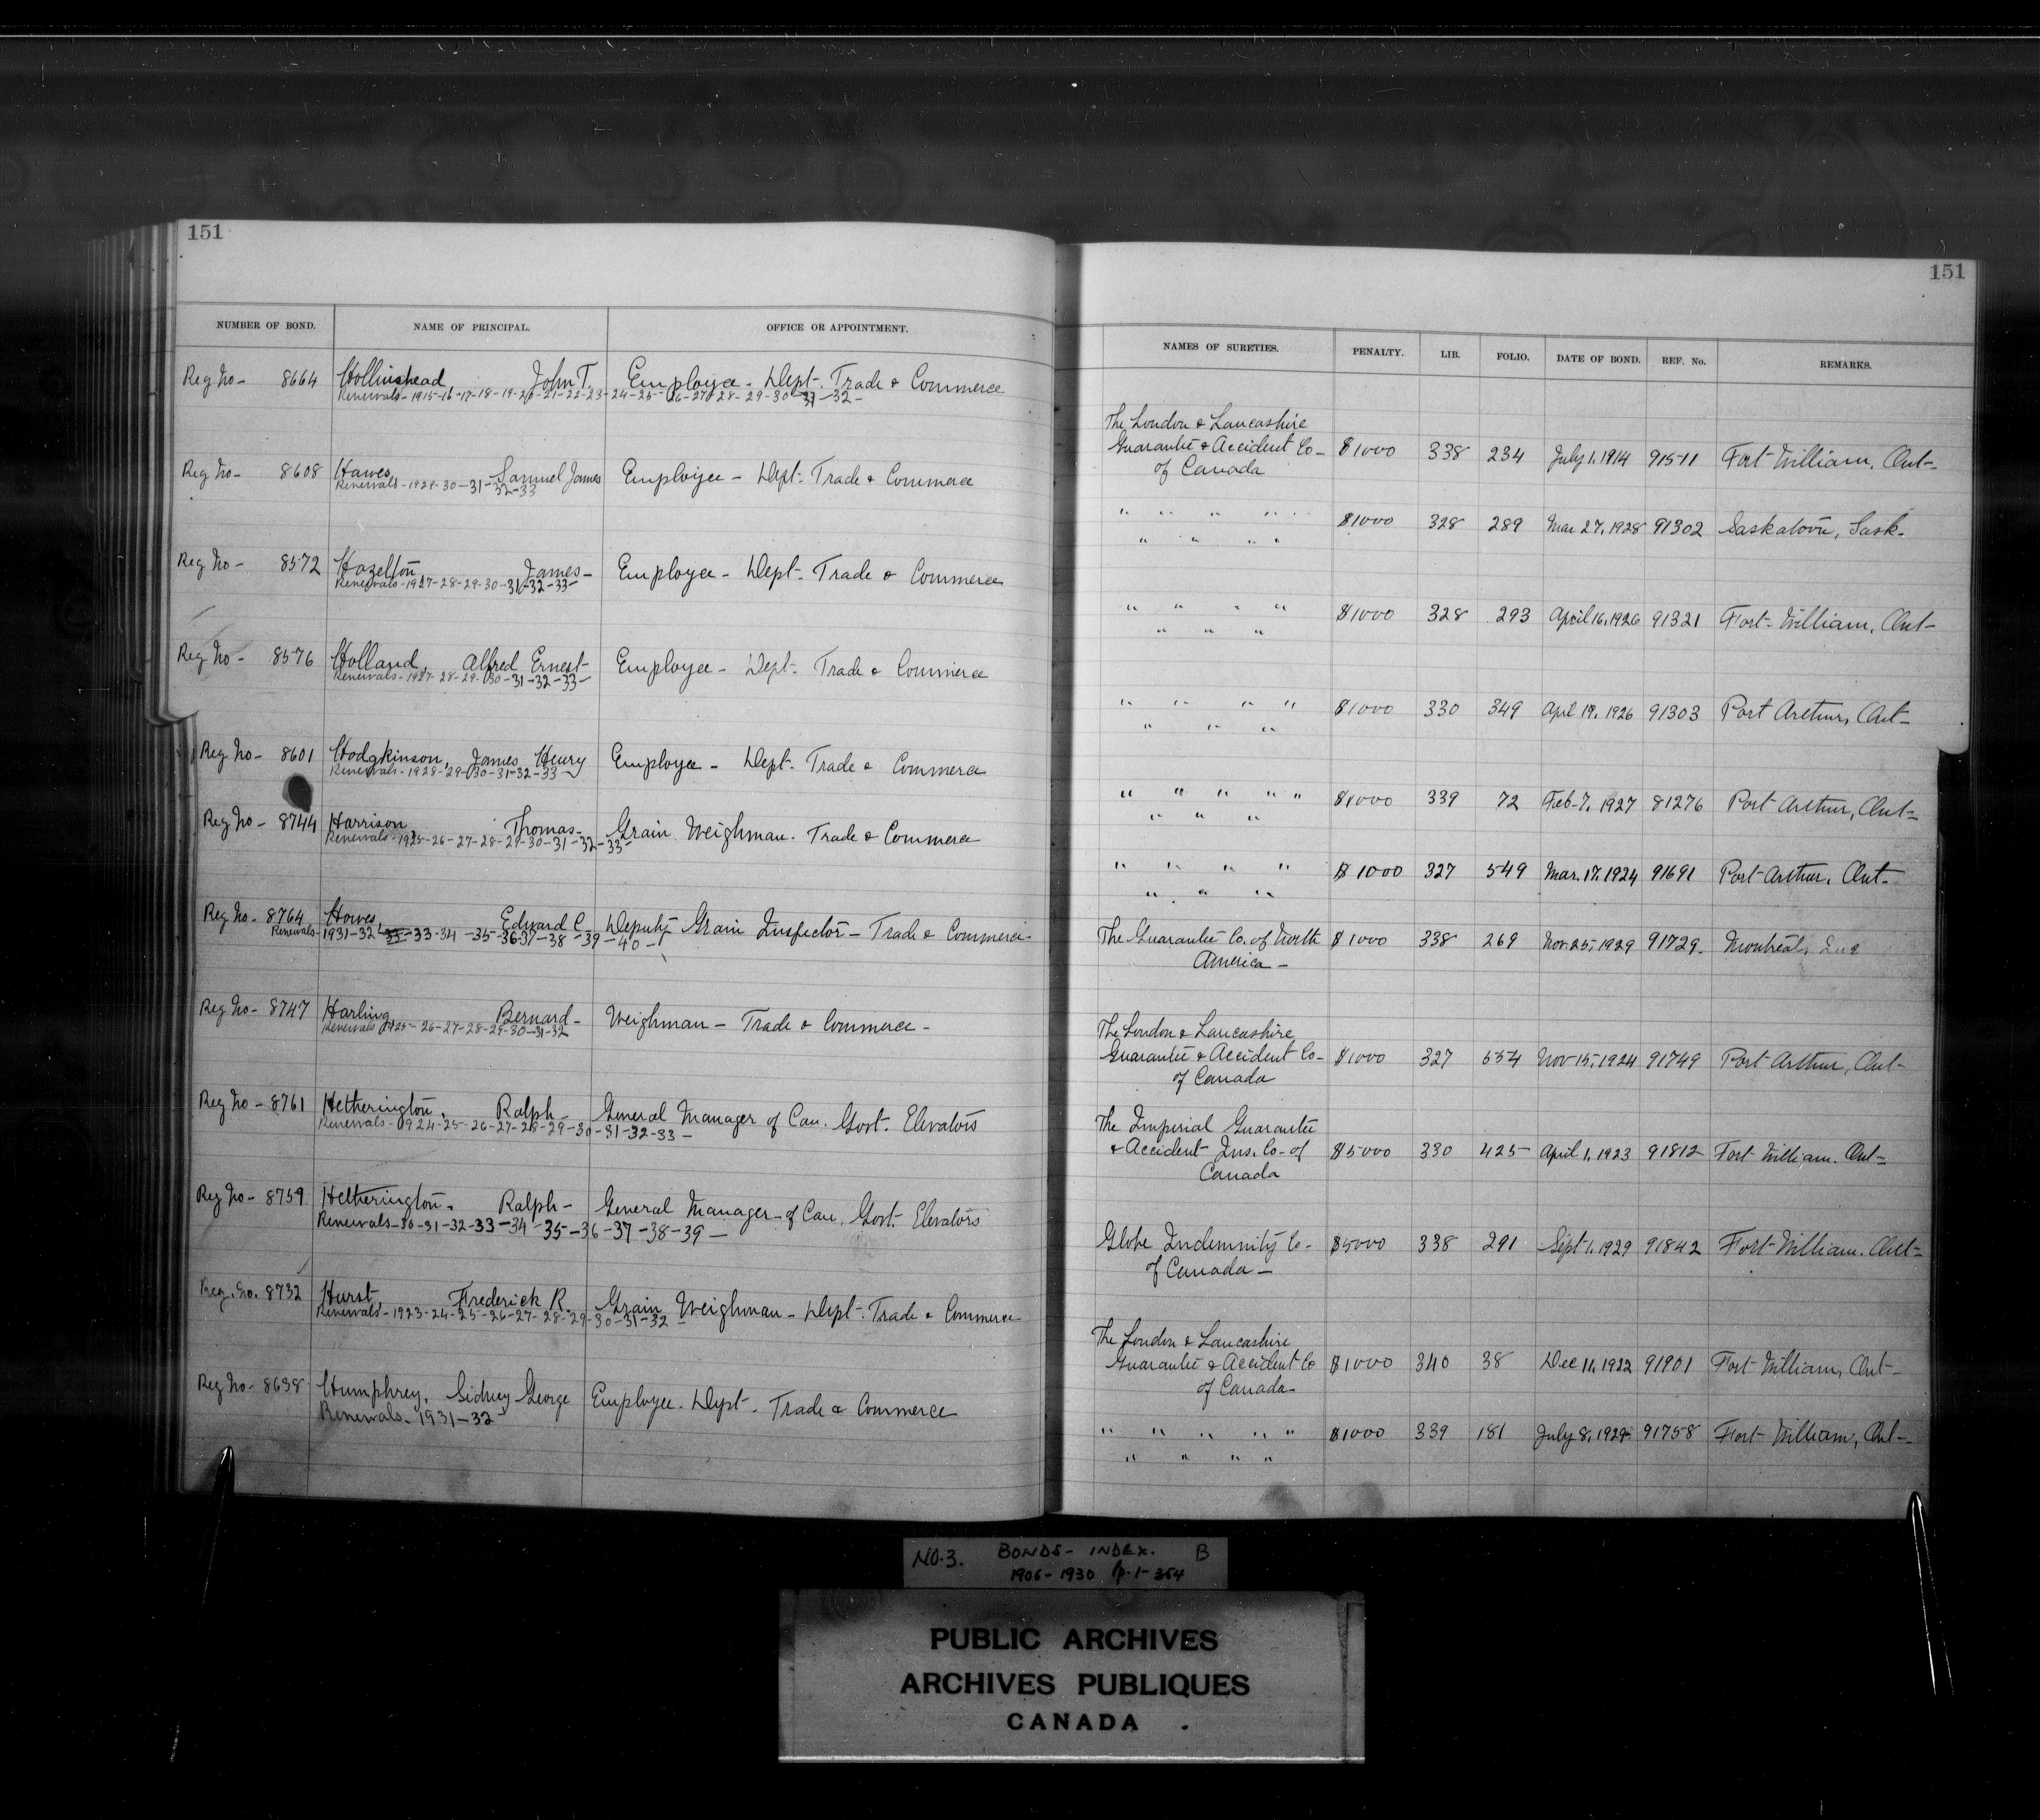 151
NUMBER OF BOND. NAME OF PRINCIPAL. OFFICE OR APPOINTMENT.
Reg No - 8664 Hollinshead, John T. Employee - Dept. Trade & Commerce
Renewals - 1915-16-17-18-19-20-21-22-23-24-25-26-27-28-29-30-31-32-
Reg No - 8608 Hawes, Samuel James Employee - Dept. Trade & Commerce
Renewals - 1929-30-31-32-33
Reg No - 8572 Hazelton, James - Employee - Dept. Trade & Commerce
Renewals - 1927-28-29-30-31-32-33-
Reg No - 8576 Holland, Alfred Ernest - Employee - Dept. Trade & Commerce
Renewals - 1927-28-29-30-31-32-33-
Reg No - 8601 Hodgkinson, James Henry Employee - Dept. Trade & Commerce
Renewals - 1928-29-30-31-32-33-
Reg No - 8744 Harrison, Thomas - Grain Weighman. Trade & Commerce
Renewals - 1925-26-27-28-29-30-31-32-33-
Reg No - 8764 Howes, Edward C. Deputy Grain Inspector - Trade & Commerce -
Renewals - 1931-32-33-33-34-35-36-37-38-39-40-
Reg No - 8747 Harling, Bernard - Weighman - Trade & Commerce -
Renewals 1925-26-27-28-29-30-31-32
Reg No - 8761 Hetherington, Ralph - General Manager of Can. Govt. Elevators
Renewals - 1924-25-26-27-28-29-30-31-32-33-
Reg No - 8759 Hetherington - Ralph - General Manager - of Can. Govt. Elevators
Renewals - 30-31-32-33-34-35-36-37-38-39-
Reg. No. 8732 Hurst, Frederick R. Grain Weighman - Dept. Trade & Commerce
Renewals - 1923-24-25-26-27-28-29-30-31-32-
Reg No - 8638 Humphrey, Sidney George Employee. Dept. Trade & Commerce
Renewals - 1931-32
151
NAMES OF SURETIES. PENALTY. LIB. FOLIO. DATE OF BOND. REF. No. REMARKS.
The London & Lancashire
Guarantee & Accident Co - $1000 338 234 July 1. 1914 91511 Fort William, Ont -
of Canada
" " " " " $1000 328 289 Mar 27, 1928 91302 Saskatoon, Sask -
" " " "
" " " " $1000 328 293 April 16, 1926 91321 Fort - William, Ont -
" " "
" " " " $1000 330 349 April 19, 1926 91303 Port Arthur, Ont -
" " "
" " " " " $1000 339 72 Feb - 7, 1927 81276 Port Arthur, Ont -
" " "
" " " " $1000 327 549 Mar. 17, 1924 91691 Port Arthur, Ont -
" " "
The Guarantee Co. of North $1000 338 269 Nov 25, 1929 91729 - Montreal, Que
America -
The London & Lancashire
Guarantee & Accident Co - $1000 327 654 Nov 15, 1924 91749 Port Arthur, Ont -
of Canada
The Imperial Guarantee
& Accident Ins. Co - of $5000 330 425 April 1, 1923 91812 Fort William. Ont -
Canada
Globe Indemnity Co - $5000 338 291 Sept 1, 1929 91842 Fort William. Ont -
of Canada -
The London & Lancashire
Guarantee & Accident Co $1000 340 38 Dec 11, 1922 91901 Fort William, Ont -
of Canada -
" " " " " $1000 339 181 July 8, 1929 91758 Fort - William, Ont -
" " " "
NO. 3. BONDS - INDEX. B
1906 - 1930 p. 1 - 354
PUBLIC ARCHIVES
ARCHIVES PUBLIQUES
CANADA